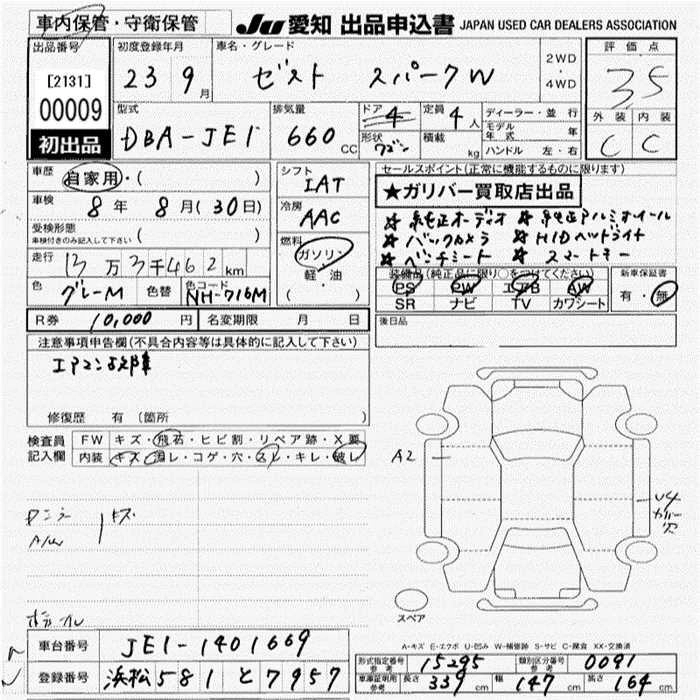 車内保管・守衛保管
JU 愛知 出品申込書 JAPAN USED CAR DEALERS ASSOCIATION
出品番号 初度登録年月 車名・グレード 評価点
[2131]
00009
初出品
23 9月 ゼスト スパークW 2WD・4WD 35
型式 排気量 ドア 定員 ディーラー・並行 外装 内装
DBA-JE1 660cc 4 4人 モデル年式 年 C C
形状 ワゴン 積載 kg ハンドル 左・右
車歴 自家用・( ) シフト IAT
セールスポイント(正常に機能するものに限ります)
★ガリバー買取店出品
車検 8年 8月(30日) 冷房 AAC
☆純正オーディオ ☆純正アルミホイール
☆バックカメラ ☆HIDヘッドライト
☆ベンチシート ☆スマートキー
受検形態 車検付きのみ記入して下さい ( )
燃料 ガソリン・軽・油 ( )
走行 13万3千462km
色 グレーM 色替 色コード NH-716M
装備品(純正品に限り○をつけてください) 新車保証書
PS PW エアB AW 有・無
SR ナビ TV カワシート
R券 10,000円 名変期限 月 日
後日品
注意事項申告欄(不具合内容等は具体的に記入して下さい)
エアコン故障
修復歴 有 (箇所
検査員記入欄 FW キズ・飛石・ヒビ割・リペア跡・X要
内装 キズ・汚レ・コゲ・穴・スレ・キレ・破レ
A2
U4
カバー欠
キズ
A/W
スペア
A-キズ E-エクボ U-凹み W-補修跡 S-サビ C-腐食 XX-交換済
車台番号 JE1-1401669
登録番号 浜松581と7957
形式指定番号 参考 15295 類別区分番号 参考 0091
車庫証明用 参考 長さ 339cm 幅 147cm 高さ 164cm